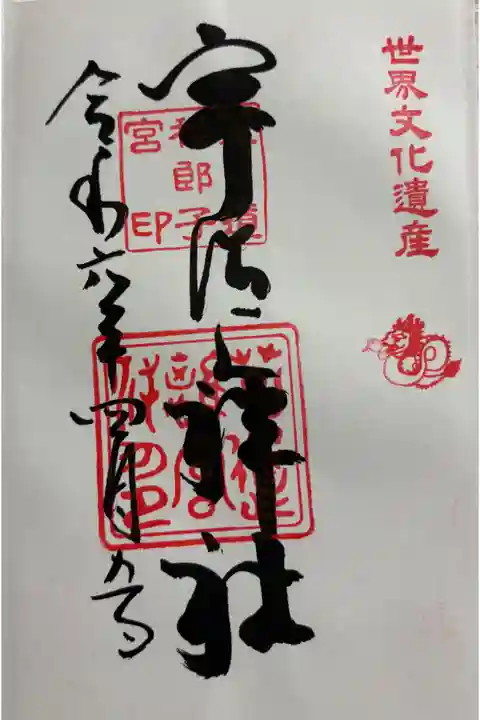 世界文化遺産
宇治上神社
郎子
宮印
令和六年四月九日